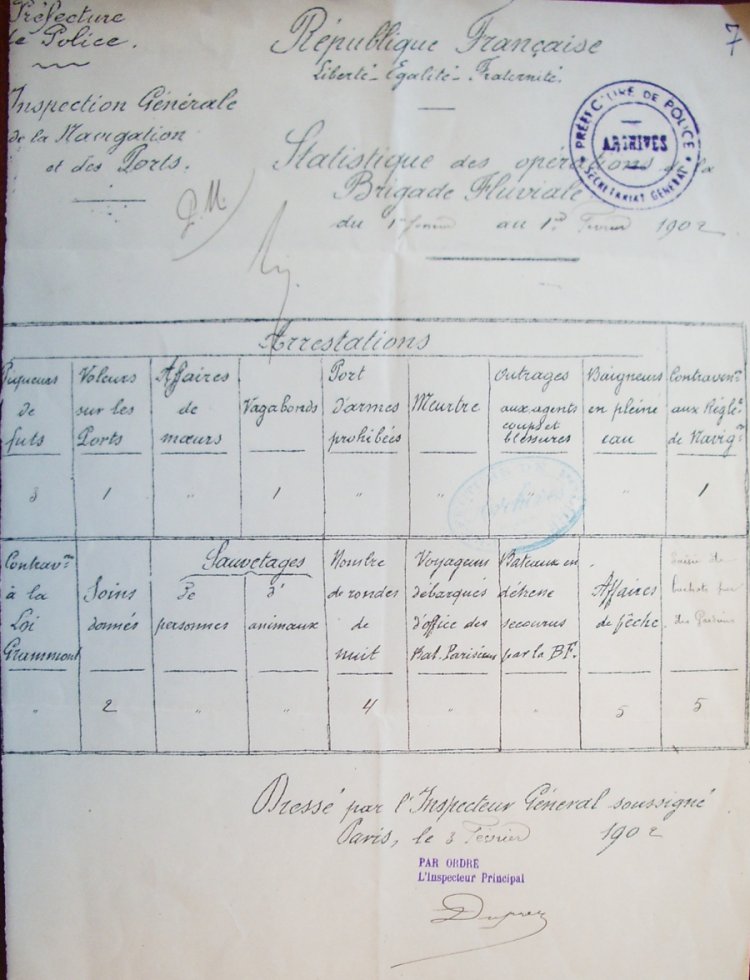 Préfecture
de Police.
République Française
Liberté - Egalité - Fraternité.
7
Inspection Générale
de la Navigation
et des Ports.
PRÉFECTURE DE POLICE
ARCHIVES
SECRETARIAT GENERAL
Statistique des opérations de la
Brigade Fluviale
du 1er au 1er Février 1902
P.M.
Arrestations
Piqueurs
de
futs
Voleurs
sur les
Ports
Affaires
de
mœurs
Vagabonds
Port
d'armes
prohibées
Meurtre
Outrages
aux agents
coups et
blessures
Baigneurs
en pleine
eau
Contraven.ns
aux Règle.
de Navig.n
3 1 " 1 " " " 1
Contrav.ns
à la
Loi
Grammont
Soins
donnés
Sauvetages
De
personnes
D'
animaux
Nombre
de rondes
de
nuit
Voyageurs
débarqués
d'office des
Bat. Parisiens
Bateaux en
détresse
secourus
par la BF.
Affaires
de pêche
Saisie de
bachots par
des
" 2 " " 4 " " 5 5
Archives
Dressé par l'Inspecteur Général soussigné
Paris, le 3 Février 1902
PAR ORDRE
L'Inspecteur Principal